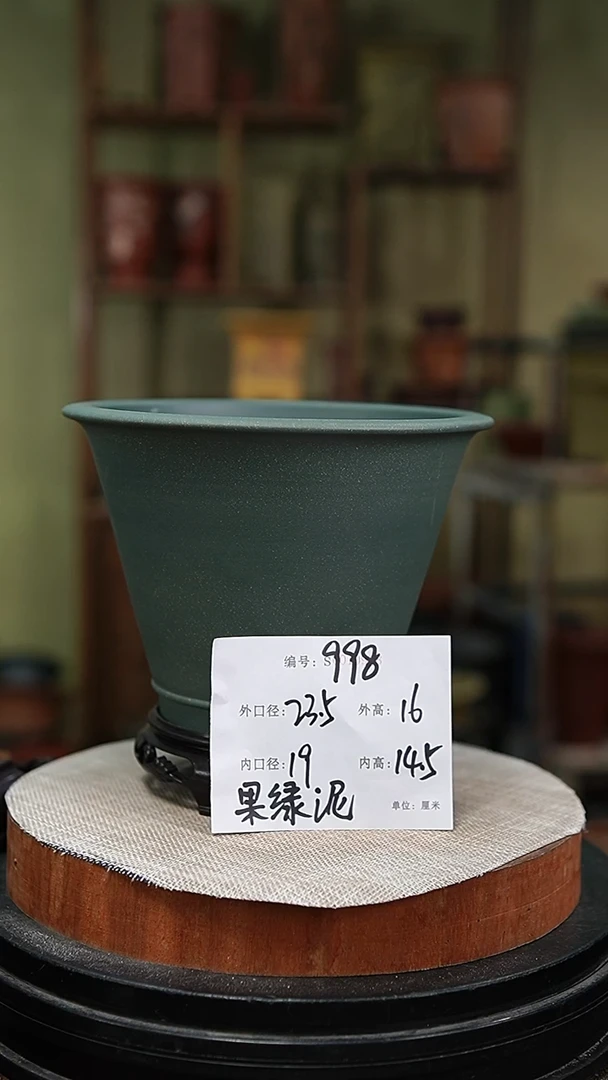 编号：S 998
外口径：23.5 外高：16
内口径：19 内高：14.5
果绿泥 单位：厘米